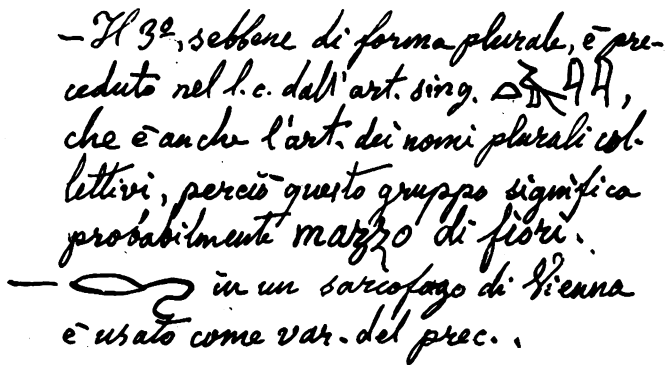 — Il 3º, sebbene di forma plurale, è pre-
ceduto nel l.c. dall'art. sing. 𓏏𓄿𓇋𓇋,
che è anche l'art. dei nomi plurali col-
lettivi, perciò questo gruppo significa
probabilmente mazzo di fiori.
— in un sarcofago di Vienna
è usato come var. del prec..